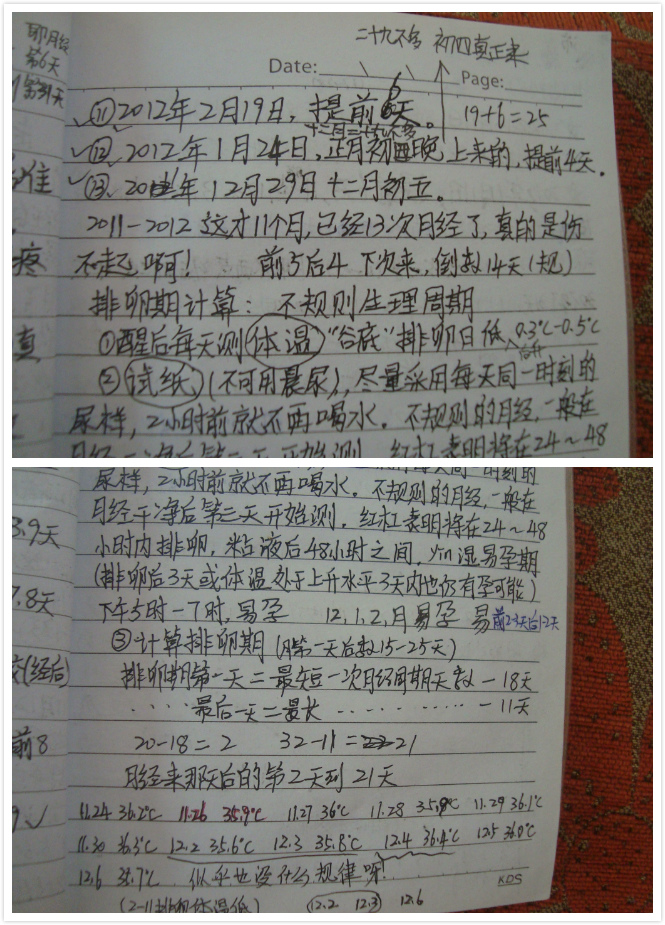 二十九不多 初四真正来
Date:
Page:
19+6=25
⑪2012年2月19日,提前6天。
⑫2012年1月24日,正月初四晚上来的,提前4天。
⑬2011年12月29日十二月初五。
2011-2012 这才11个月,已经13次月经了,真的是伤
不起啊! 前5后4 下次来,倒数14天(规)
排卵期计算: 不规则生理周期
①醒后每天测体温"谷底"排卵日低0.3℃-0.5℃
②试纸(不可用晨尿),尽量采用每天同一时刻的
尿样,2小时前就不再喝水。不规则的月经,一般在
红杠表明将在24~48
尿样,2小时前就不再喝水。不规则的月经,一般在
月经干净后第三天开始测,红杠表明将在24~48
小时内排卵,粘液后48小时之间,yin湿易孕期
(排卵后3天或体温处于上升水平3天内也仍有孕可能)
下午5时-7时,易孕 12,1,2,月易孕 易前2-3天后1-2天
③计算排卵期(月第一天后数15-25天)
排卵期第一天=最短一次月经周期天数-18天
····最后一天=最长··········-11天
20-18=2 32-11=21
月经来那天后的第2天到21天
11.24 36.2℃ 11.26 35.9℃ 11.27 36℃ 11.28 35.9℃ 11.29 36.1℃
11.30 36.3℃ 12.2 35.6℃ 12.3 35.8℃ 12.4 36.4℃ 12.5 36.0℃
12.6 35.7℃ 似乎也没什么规律呀!
KDS
(2-11排卵体温低) 12.2 12.3 12.6
3.9天
7.8天
(经后)
前8
疼